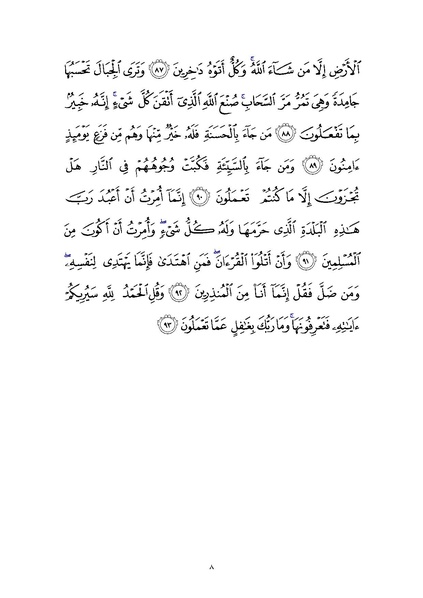 ٱلۡأَرۡضِ إِلَّا مَن شَآءَ ٱللَّهُۚ وَكُلٌّ أَتَوۡهُ دَٰخِرِينَ ٨٧ وَتَرَى ٱلۡجِبَالَ تَحۡسَبُهَا
جَامِدَةٗ وَهِيَ تَمُرُّ مَرَّ ٱلسَّحَابِۚ صُنۡعَ ٱللَّهِ ٱلَّذِيٓ أَتۡقَنَ كُلَّ شَيۡءٍۚ إِنَّهُۥ خَبِيرُۢ
بِمَا تَفۡعَلُونَ ٨٨ مَن جَآءَ بِٱلۡحَسَنَةِ فَلَهُۥ خَيۡرٞ مِّنۡهَا وَهُم مِّن فَزَعٖ يَوۡمَئِذٍ
ءَامِنُونَ ٨٩ وَمَن جَآءَ بِٱلسَّيِّئَةِ فَكُبَّتۡ وُجُوهُهُمۡ فِي ٱلنَّارِ هَلۡ
تُجۡزَوۡنَ إِلَّا مَا كُنتُمۡ تَعۡمَلُونَ ٩٠ إِنَّمَآ أُمِرۡتُ أَنۡ أَعۡبُدَ رَبَّ
هَٰذِهِ ٱلۡبَلۡدَةِ ٱلَّذِي حَرَّمَهَا وَلَهُۥ كُلُّ شَيۡءٖۖ وَأُمِرۡتُ أَنۡ أَكُونَ مِنَ
ٱلۡمُسۡلِمِينَ ٩١ وَأَنۡ أَتۡلُوَاْ ٱلۡقُرۡءَانَۖ فَمَنِ ٱهۡتَدَىٰ فَإِنَّمَا يَهۡتَدِي لِنَفۡسِهِۦۖ
وَمَن ضَلَّ فَقُلۡ إِنَّمَآ أَنَا۠ مِنَ ٱلۡمُنذِرِينَ ٩٢ وَقُلِ ٱلۡحَمۡدُ لِلَّهِ سَيُرِيكُمۡ
ءَايَٰتِهِۦ فَتَعۡرِفُونَهَاۚ وَمَا رَبُّكَ بِغَٰفِلٍ عَمَّا تَعۡمَلُونَ ٩٣
٨